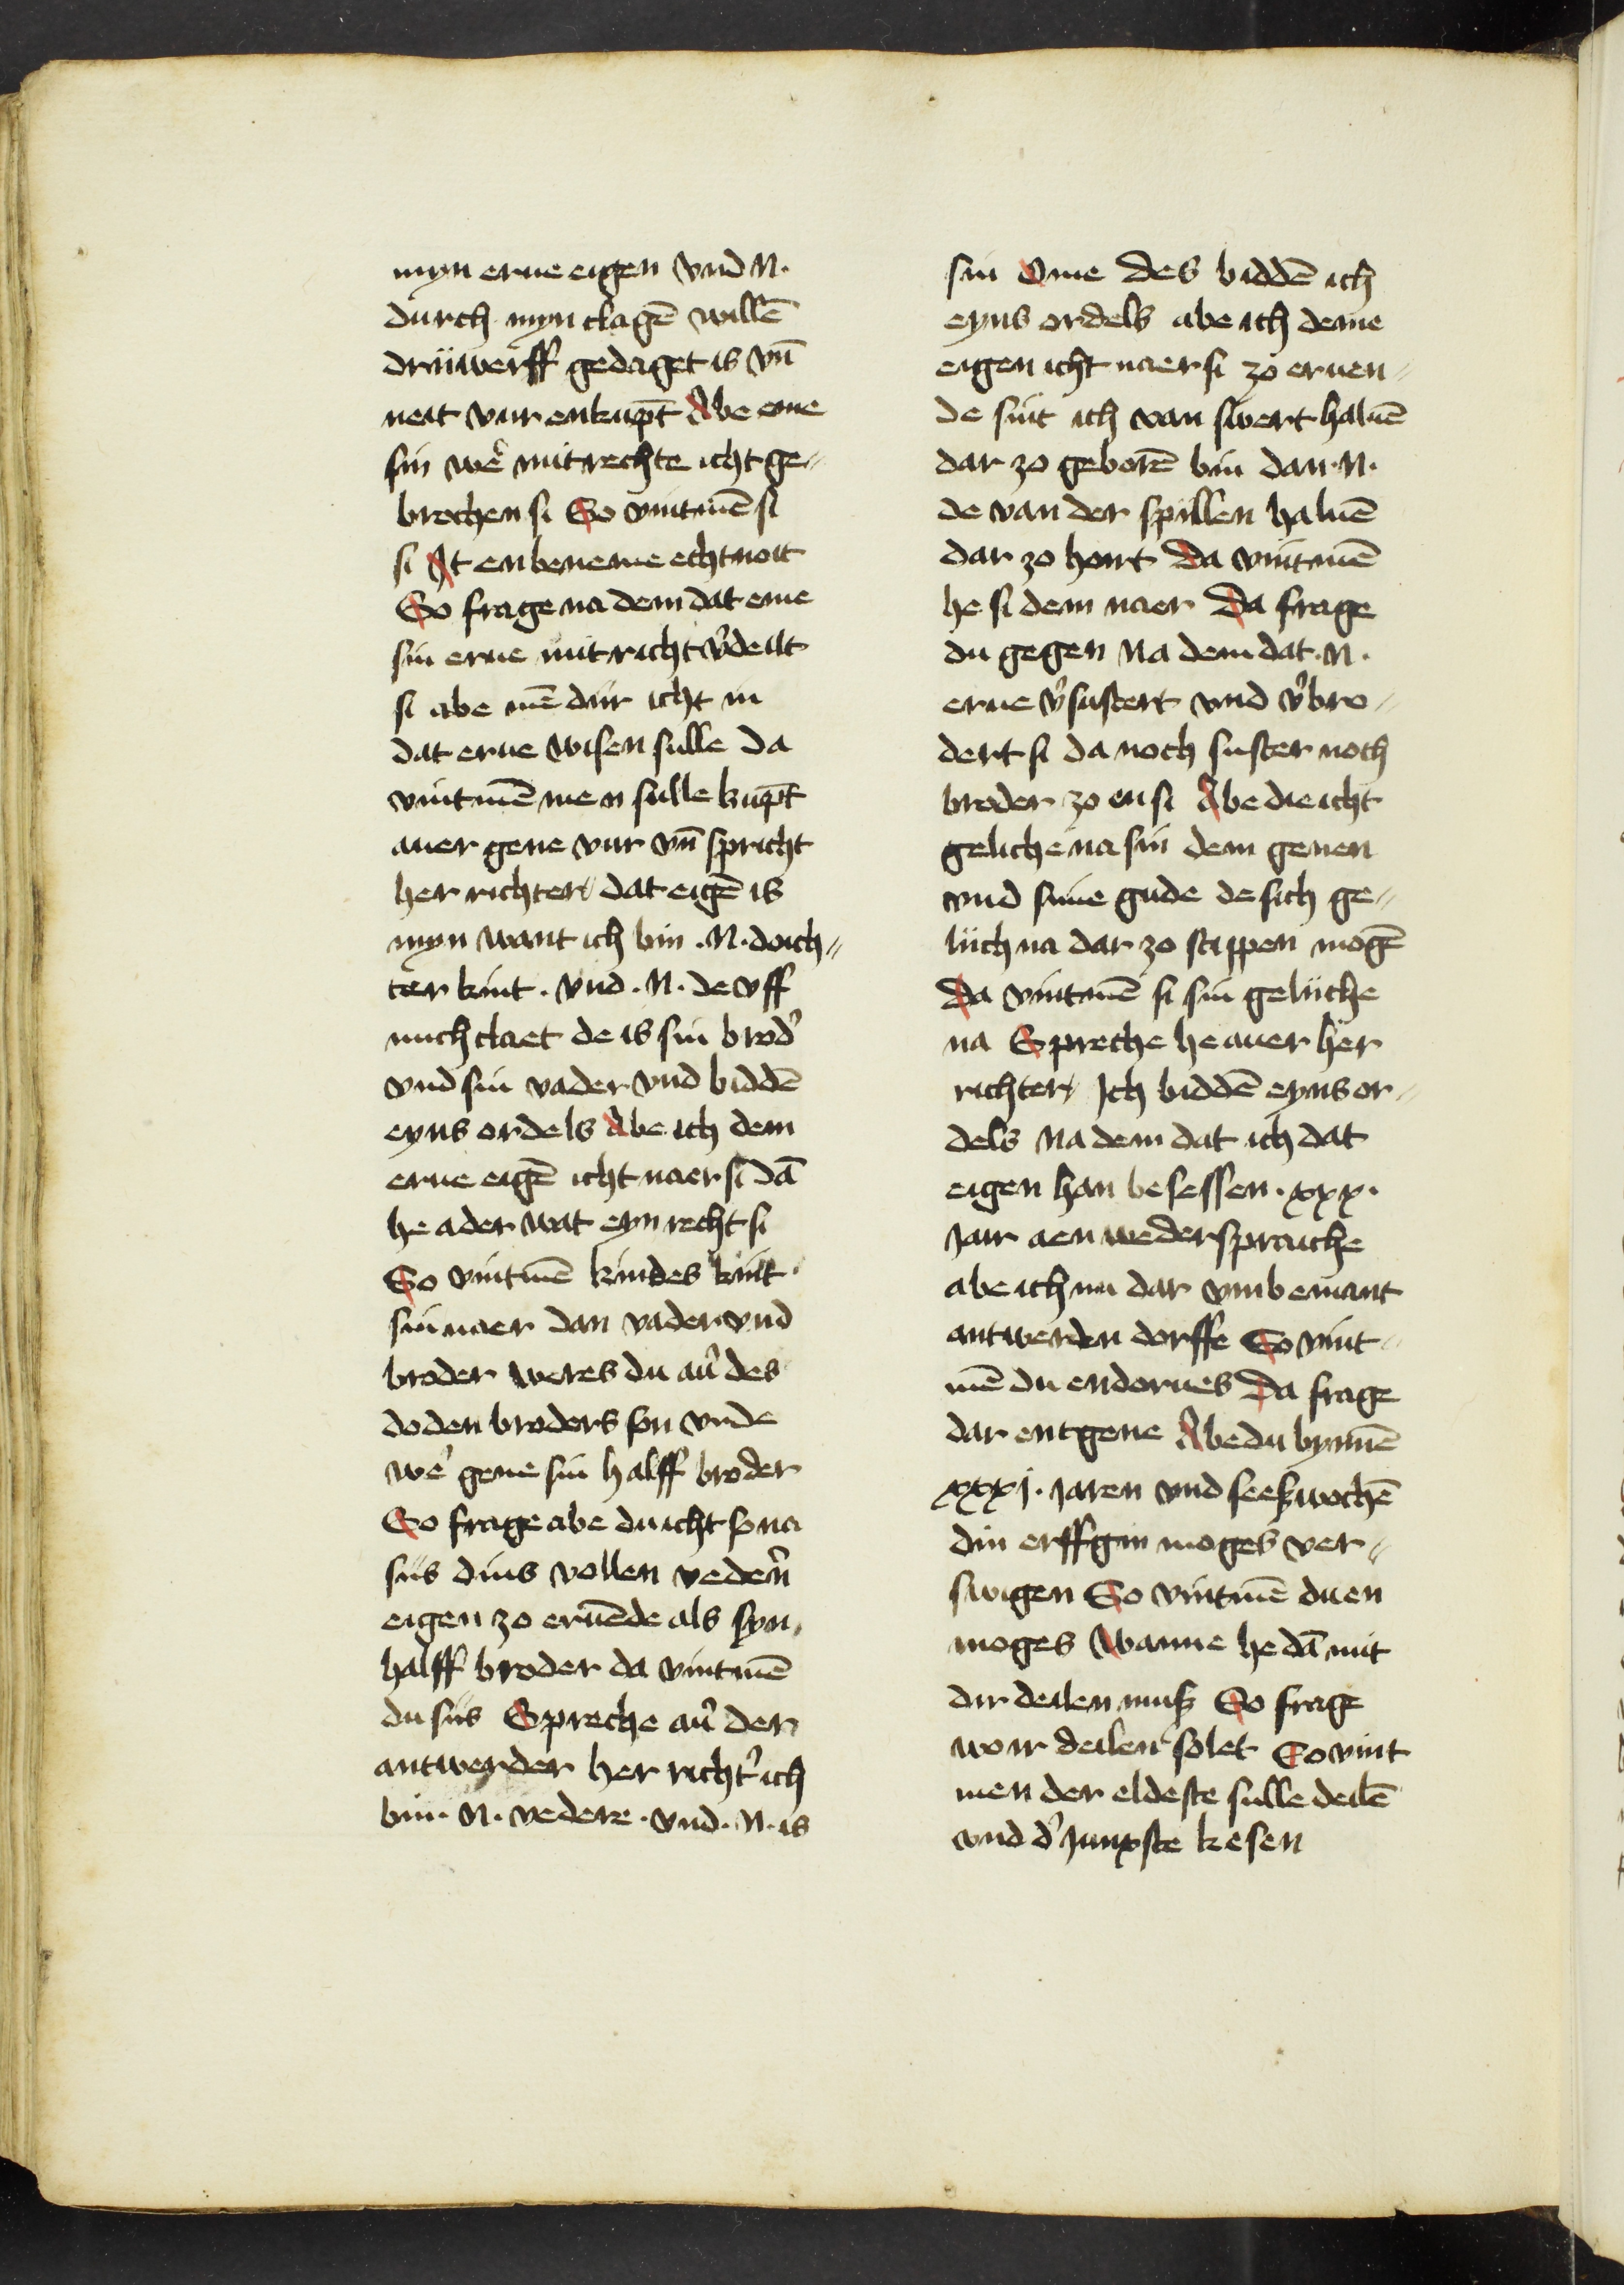 myn erue eigen vnd N.
durch myn clagē willē
drüwerff gedaget is vn̄
neit vur enkūpt Abe eme
sin we᷑ mit rechte icht ge⸗
brochen si So vintmē si
si It enbeneme echt noit
So frage na dem dat eme
sin erue mit richt v᷑deilt
si abe mē dūr icht in
dat erue wisen sulle da
vintmē men sulle kūpt
auer gene vur vn̄ spricht
her richter dat eigē is
myn want ich bin .N. doich⸗
ter kint . vnd .N. de vff
mich claet de is sin brod᷑
vnd sin vader vnd biddē
eyns ordels Abe ich dem
erue eigē icht naer si dā
he ader wat eyn recht si
So vintmē kindes kint
sin naer dan vader vnd
broder weres du au᷑ des
doden broders son vnde
we᷑ gene sin halff broder
So frage abe du icht so na
siis dins vollen veder᷑n
eigen zo eruēde als syn
halff broder da vintmē
du siis Spreche au᷑ der
antwerder her richt᷑ ich
bin .N. vedere . vnd .N. is
sin Ome des biddē ich
eyns ordels abe ich deme
eigen icht naer si zo eruen⸗
de sint ich van swert haluē
dar zo geborē bin dan .N.
de van der spillen haluē
dar zo hort Da vintmē
he si dem naer Da frage
du gegen Na dem dat .N.
erue v᷑sustert vnd v᷑bro⸗
dert si da noch suster noch
broder zo en si Abe die icht
geliche na sin dem genen
vnd sime gude de sich ge⸗
lüch na dar zo stippen mogē
Da vintmē si sin gelüche
na Spreche he auer her
richter Ich biddē eyns or⸗
dels Na dem dat ich dat
eigen han besessen . xxx .
Jair aen wedersprache
abe ich nu dar vmb emant
antwerden dorffe So vint⸗
mē du endorues Da frage
dar entgene Abe du bynnē
xxxj . Jaren vnd seeß wochē
din erffgin moges ver⸗
swigen So vintmē du en
moges Wanne he dā mit
dir deilen muß So frage
wo ir deilen solet So vint
men der eldeste sulle deilē
vnd d᷑ Jungste kesen